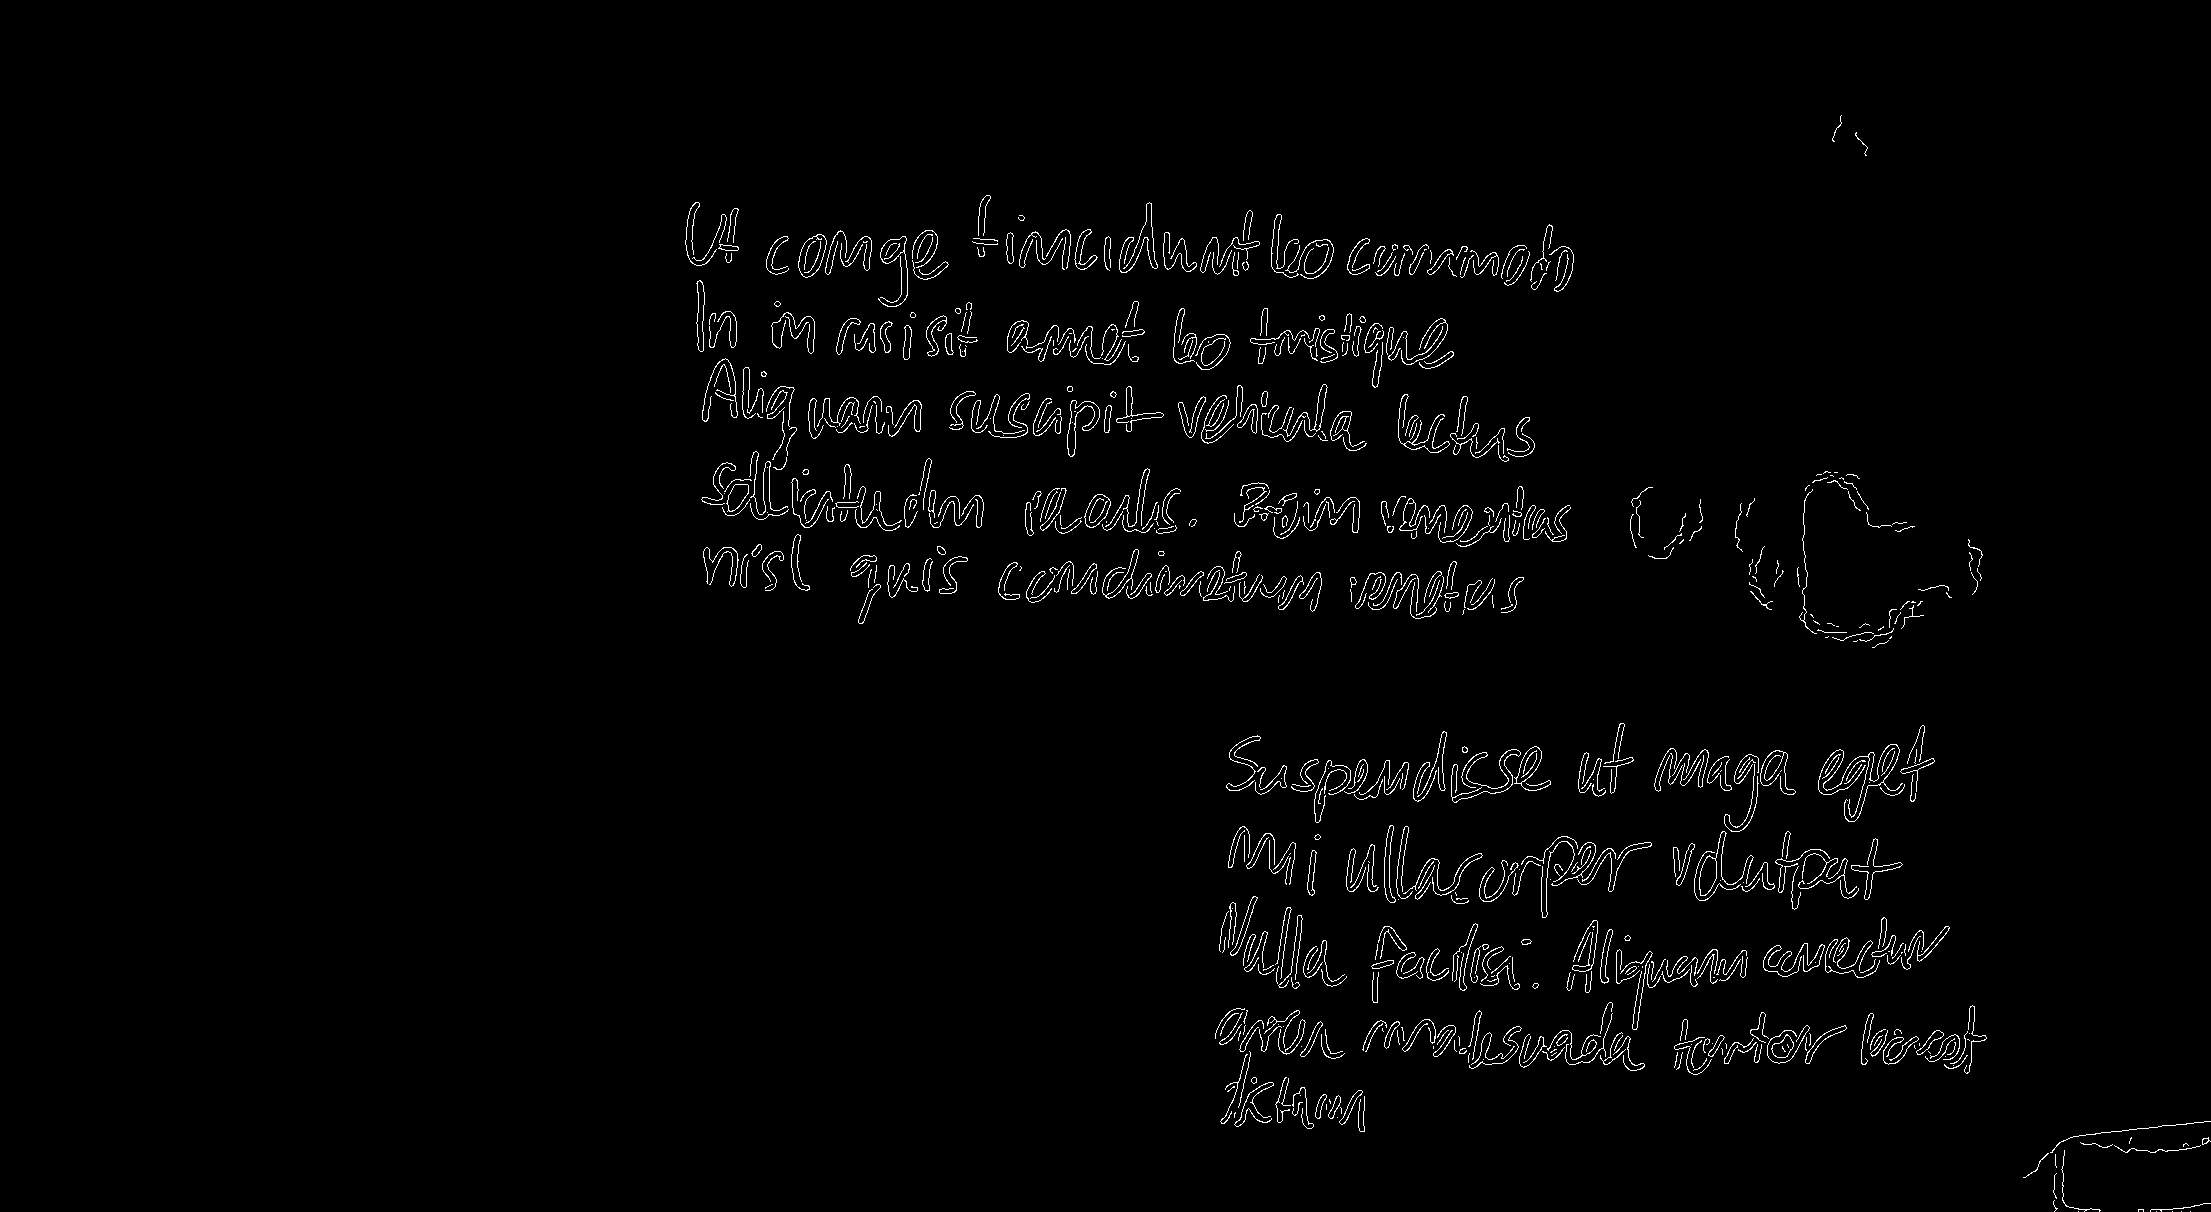 Ut conge tincidunt leo commodo
In in risi sit amet leo tristique
Aliquam suscipit vehicula lectus
sollicitudin iaculis. Proin
nisl quis condimetum
Suspendisse ut maga eget
mi ullacorper volutpat
Nulla facilisi. Aliquam
arcu malesuada tortor
dictum